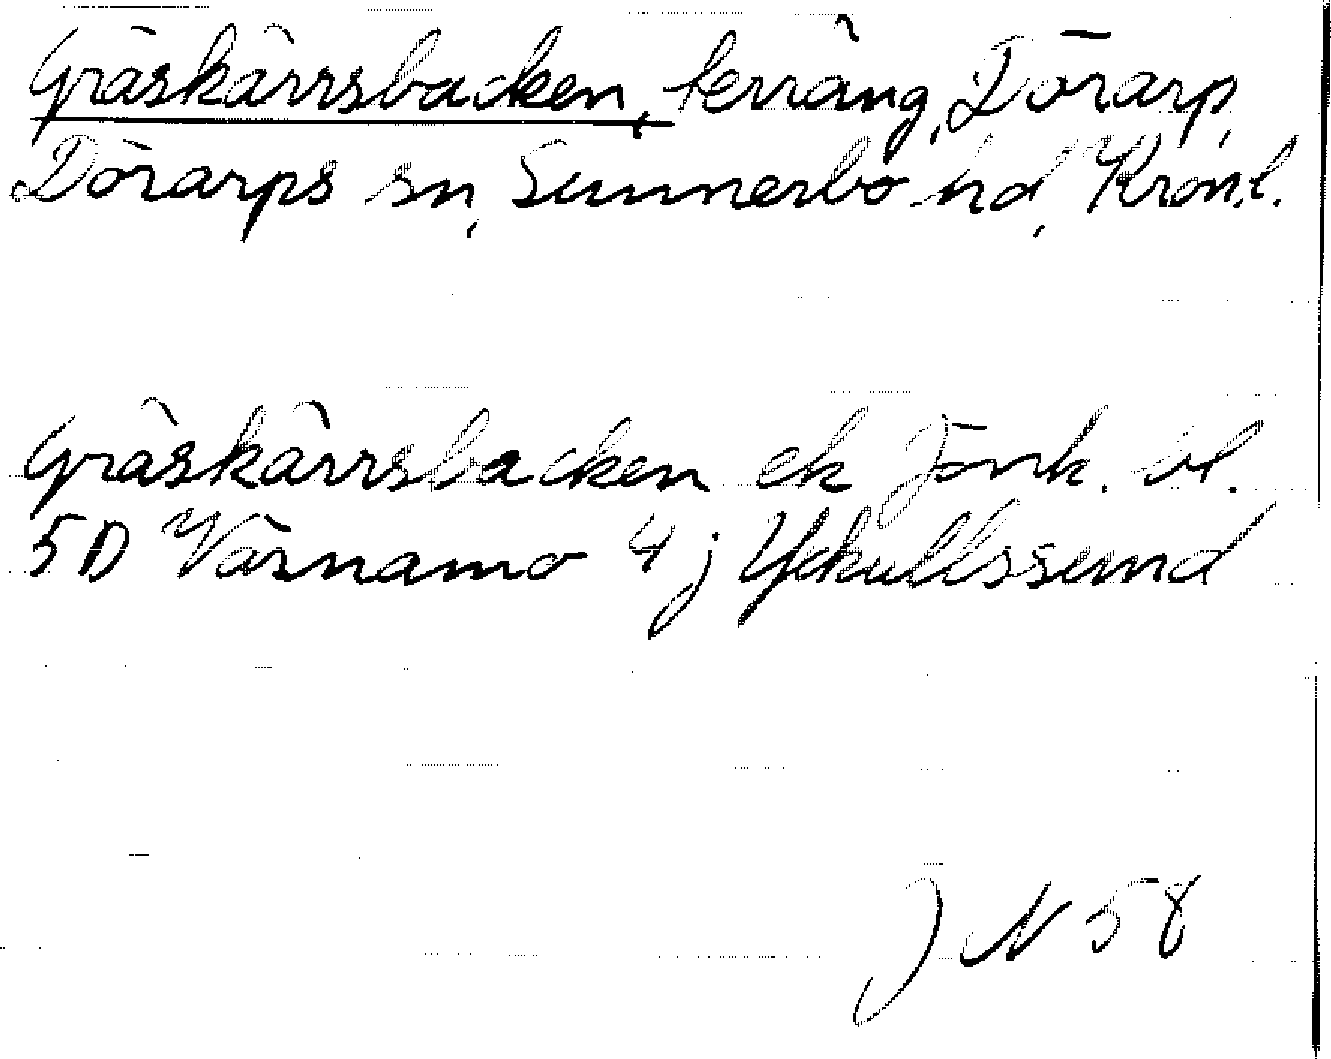 Gräskärrsbacken, terräng, Dörarp,
Dörarps sn, Sunnerbo hd, Kron.l.
Gräskärrsbacken ek Jönk. bl.
5D Värnamo 4j Yckullssund
J N 58